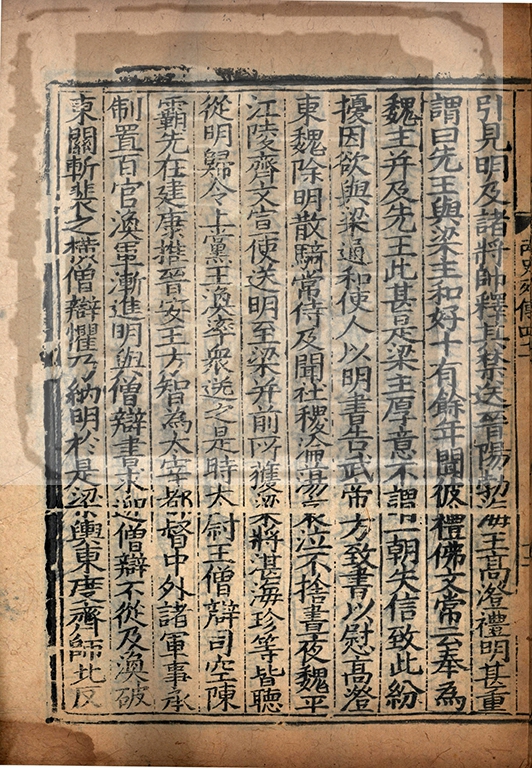 引見明及諸將帥釋其禁送晉陽勃海王高澄禮明甚重
謂曰先王與梁主和好十有餘年聞彼禮佛文常云奉為
魏主并及先王此甚是梁主厚意不謂一朝失信致此紛
擾因欲與梁通和使人以明書告武帝方致書以慰高澄
東魏除明散騎常侍及聞社稷淪蕩哀泣不捨晝夜魏平
江陵齊文宣使送明至梁并前所獲梁將湛海珍等皆聽
從明歸令上黨王渙率衆送之是時太尉王僧辯司空陳
霸先在建康推晉安王方智為太宰都督中外諸軍事承
制置百官渙軍漸進明與僧辯書求迎僧辯不從及渙破
東關斬裴之橫僧辯懼乃納明於是梁輿東度齊師北反